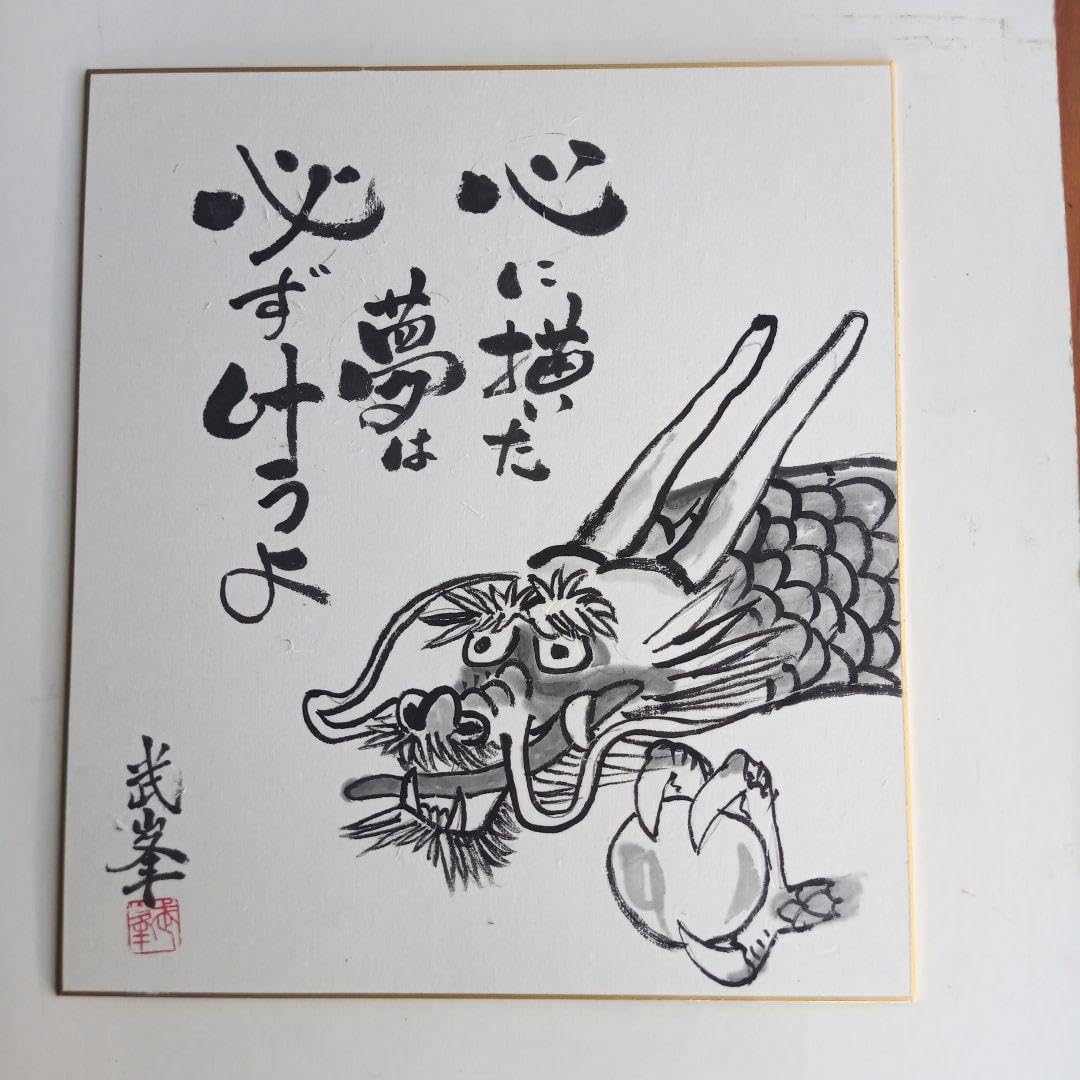 心に描いた
夢は
必ず叶うよ
武峯
武峯